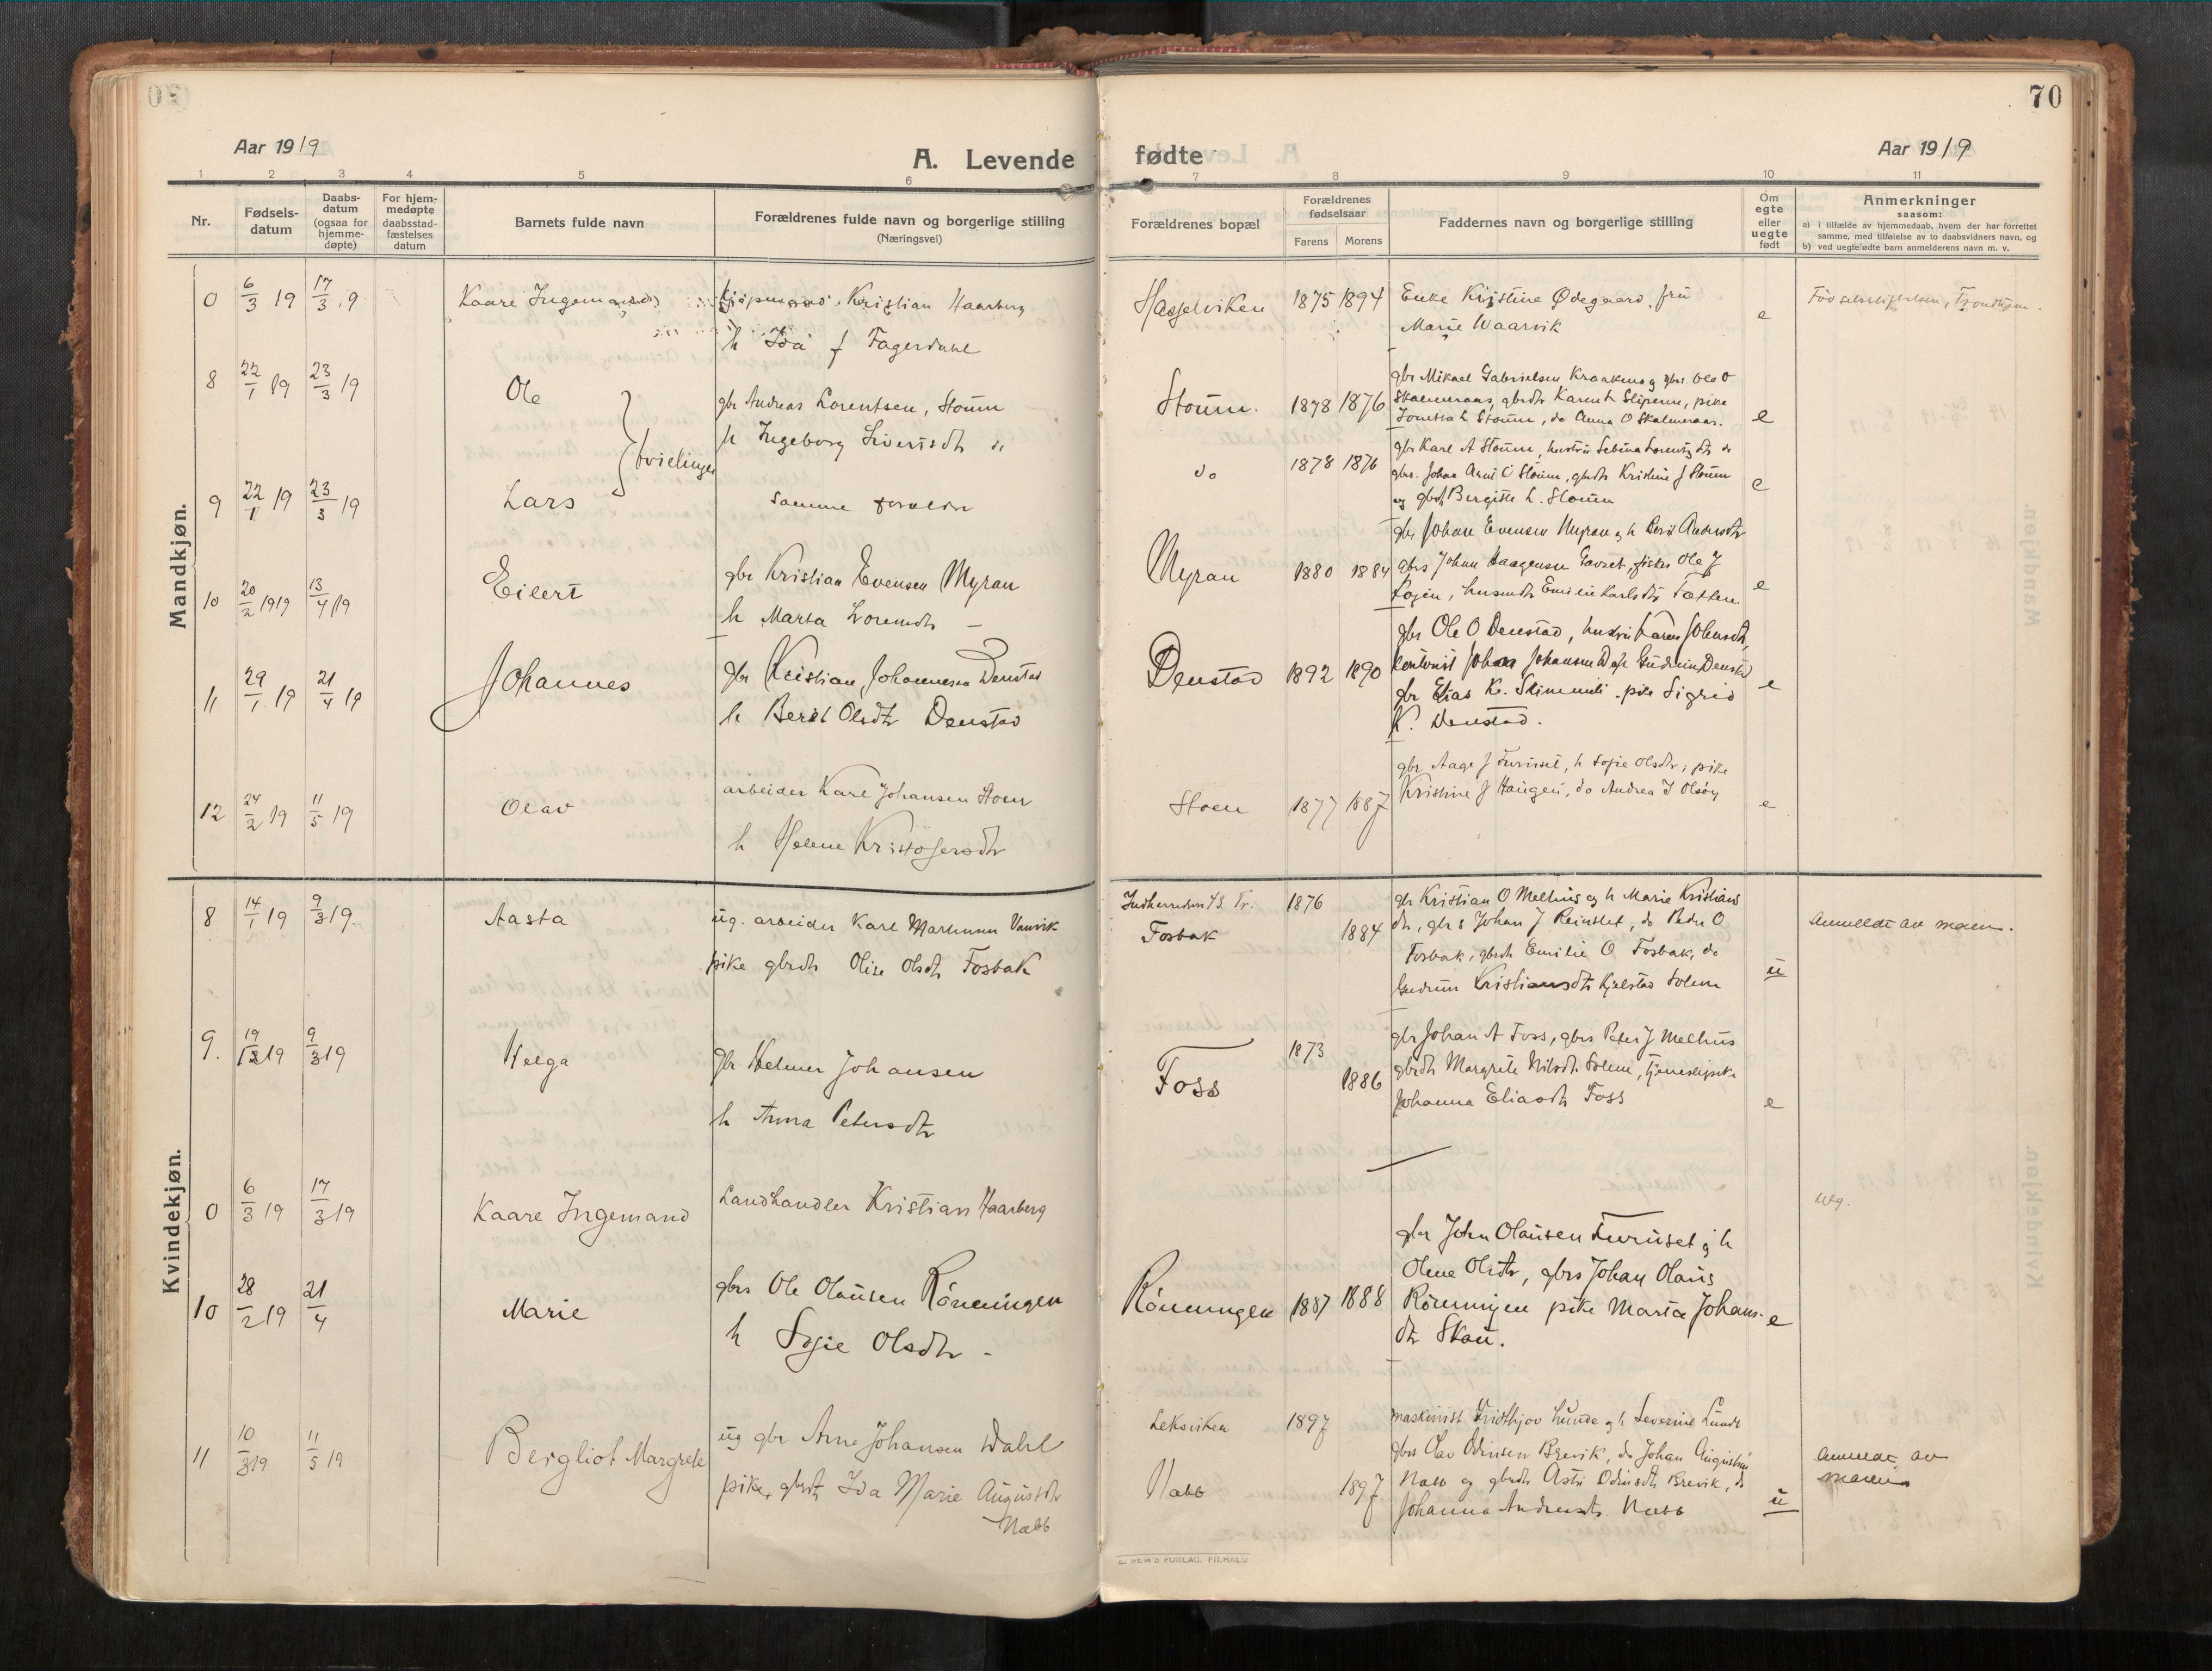 70
Aar 1919
A. Levende
fødte
Aar 1919
1 2 3 4 5 6 7 8 9 10 11
Nr.
Fødsels-
datum
Daabs-
datum
(ogsaa for
hjemme-
døpte)
For hjem-
medøpte
daabsstad-
fæstelses
datum
Barnets fulde navn
Forældrenes fulde navn og borgerlige stilling
(Næringsvei)
Forældrenes bopæl
Forældrenes
fødselsaar
Farens Morens
Faddernes navn og borgerlige stilling
Om
egte
eller
uegte
født
Anmerkninger
saasom:
a) i tilfælde av hjemmedaab, hvem der har forrettet
samme, med tilføielse av to daabsvidners navn, og
b) ved uegtefødte barn anmelderens navn m. v.
Mandkjøn.
0 6/3 19 17/3 19 Kaare Ingemand Kristian Haarberg
h Ida f Fagerdahl
Hasselviken 1875 1894 Enke Kristine Ødegaard, fru
Marie Waarvik
e
Fødselsstiftelsen, Trondhjem.
8 22/1 19 23/3 19 Ole
tvielinger
gbr Andreas Lorentsen, Stoum
h Ingeborg Sivertsdtr
Stoum. 1878 1876
gbr Mikael Gabrielsen Kraakmo og gbrs Ole O
Skalmeraas, gbrdtr Karen L Sliperen, pike
Stoum, do Anna O Skalmeraas.
e
9 22/1 19 23/3 19 Lars samme forældre
do 1878 1876
gbr Karl A Stoum, hustru
gbrs. Johan O Stoum, gbrdtr Kristine J Stoum
og Bergitte L. Stoum
e
10 20/2 1919 13/4 19 Eilert
gbr Kristian Evensen Myran
h Marta —
Myran 1880 1884
gbr Johan Evensen Myran og h Berit Andersdtr
gbrs Johan Haagensen fisker Ole J
husmdtr Emilie Karlsdtr
e
11 29/1 19 21/4 19 Johannes
gbr Kristian Johannesen Denstad
h Berit Olsdtr Denstad
Denstad 1892 1890
gbr Ole O Denstad, hustru Karen Johnsdtr,
Johan Johansen Gudrun Denstad
gbr Elias K. pike Sigrid
K. Denstad.
e
12 24/2 19 11/5 19 Olav
arbeider Karl Johansen Stoen
h Helene Kristofersdtr
Stoen 1877 1887
gbr Aage J Furuset, h Sofie Olsdtr, pike
Kristine J Haugen, do Andrea J Olsøy
e
Kvindekjøn.
8 14/1 19 9/3 19. Aasta
ug. arbeider Karl Martinsen Vanvik
pike gbrdtr Olise Olsdtr Fosbak
Tr. 1876
Fosbak 1884
gbr Kristian O Melhus og h Marie Kristians
dtr, gbrs Johan J Reinslet, do Peder O
Fosbak, gbrdtr Emilie O Fosbak, do
Gudrun Kristiansdtr Kjelstad Solem
u
Anmeldt av moren.
9. 19/12 19 9/3 19 Helga
gbr Helmer Johansen
h Anna Petersdtr
Foss 1873
1886
gbr Johan A Foss, gbrs Peter J Melhus
gbrdtr Margrete Nilsdtr Solem, tjenestepike
Johanna Eliasdtr Foss
e
0 6/3 19 17/3 19 Kaare Ingemand Landhandler Kristian Haarberg
utg.
10 28/2 19 21/4 Marie
gbrs Ole Olausen Rönningen
h Sofie Olsdtr -
Rönningen 1887 1888
gbr John Olausen Furuset og h
Oline Olsdtr, gbrs Johan Olaus
Rönningen pike Marta Johans-
dtr Skau.
e
11 10/3 19 11/5 19 Bergliot Margrete
ug gbr Arne Johansen Dahl
pike, gbrdtr Ida Marie Augustdtr
Nabb
Leksviken 1897
Nabb 1897
maskinist Fridtjov Lunde og h Severine Lunde
gbrs Olav Odinsen Brevik, do Johan
Nabb og gbrdtr Asta Odinsdtr Brevik, do
Johanna Andreasdtr. Nabb
u
Anmeldt av
moren
E. SEM'S FORLAG. FR.HALD